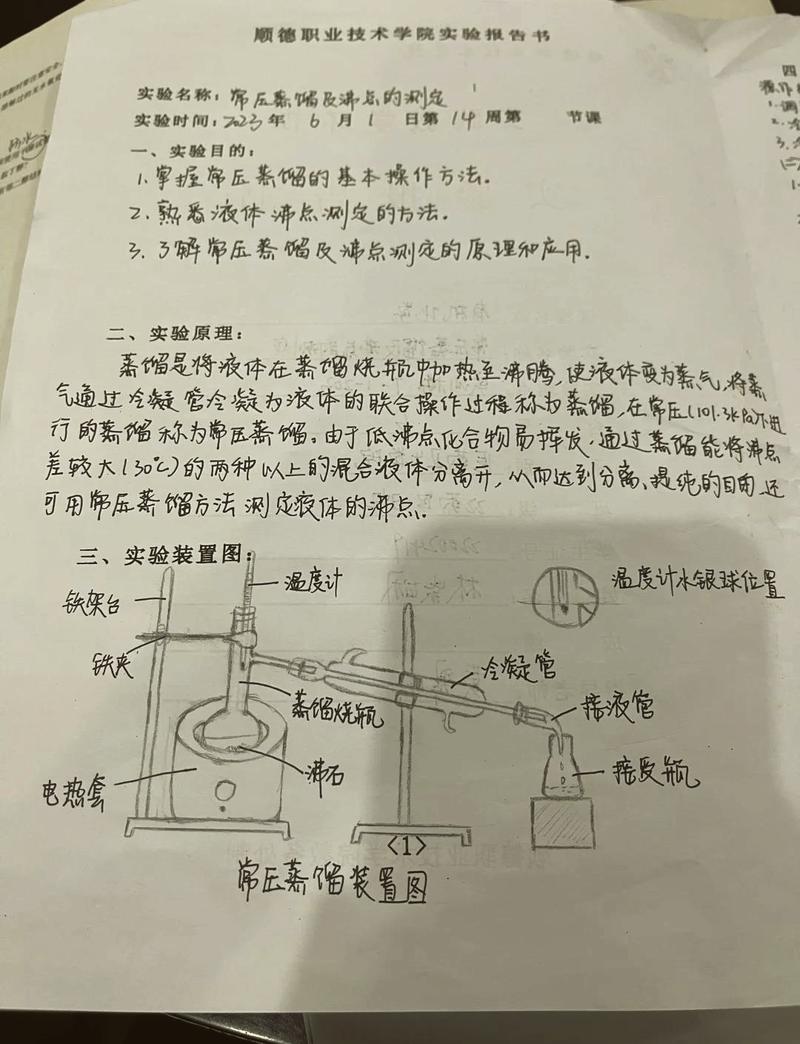 顺德职业技术学院实验报告书
实验名称：常压蒸馏及沸点的测定
实验时间：2023年 6 月 1 日第 14 周第 节课
一、实验目的：
1.掌握常压蒸馏的基本操作方法.
2.熟悉液体沸点测定的方法.
3.了解常压蒸馏及沸点测定的原理和应用.
二、实验原理：
蒸馏是将液体在蒸馏烧瓶中加热至沸腾,使液体变为蒸气,将蒸
气通过冷凝管冷凝为液体的联合操作过程称为蒸馏,在常压(101.3kPa)下进
行的蒸馏称为常压蒸馏。由于低沸点化合物易挥发,通过蒸馏能将沸点
差较大(30℃)的两种以上的混合液体分离开,从而达到分离、提纯的目的,还
可用常压蒸馏方法测定液体的沸点.
三、实验装置图：
温度计
温度计水银球位置
铁架台
铁夹
冷凝管
蒸馏烧瓶
接液管
沸石
接受瓶
电热套
<1>
常压蒸馏装置图
四
1.
2.
3.